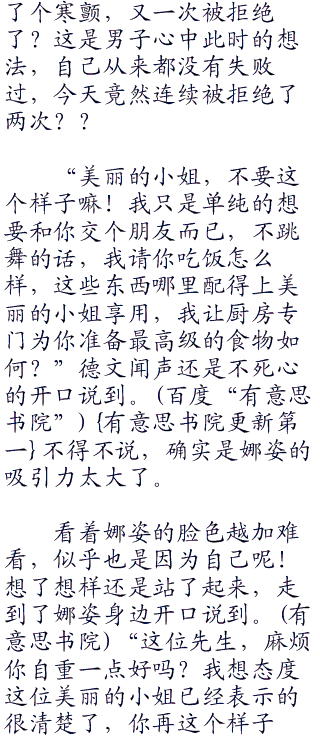 了个寒颤，又一次被拒绝
了？这是男子心中此时的想
法，自己从来都没有失败
过，今天竟然连续被拒绝了
两次？？
“美丽的小姐，不要这
个样子嘛！我只是单纯的想
要和你交个朋友而已，不跳
舞的话，我请你吃饭怎么
样，这些东西哪里配得上美
丽的小姐享用，我让厨房专
门为你准备最高级的食物如
何？”德文闻声还是不死心
的开口说到。(百度“有意思
书院”){有意思书院更新第
一}不得不说，确实是娜姿的
吸引力太大了。
看着娜姿的脸色越加难
看，似乎也是因为自己呢！
想了想样还是站了起来，走
到了娜姿身边开口说到。(有
意思书院)“这位先生，麻烦
你自重一点好吗？我想态度
这位美丽的小姐已经表示的
很清楚了，你再这个样子